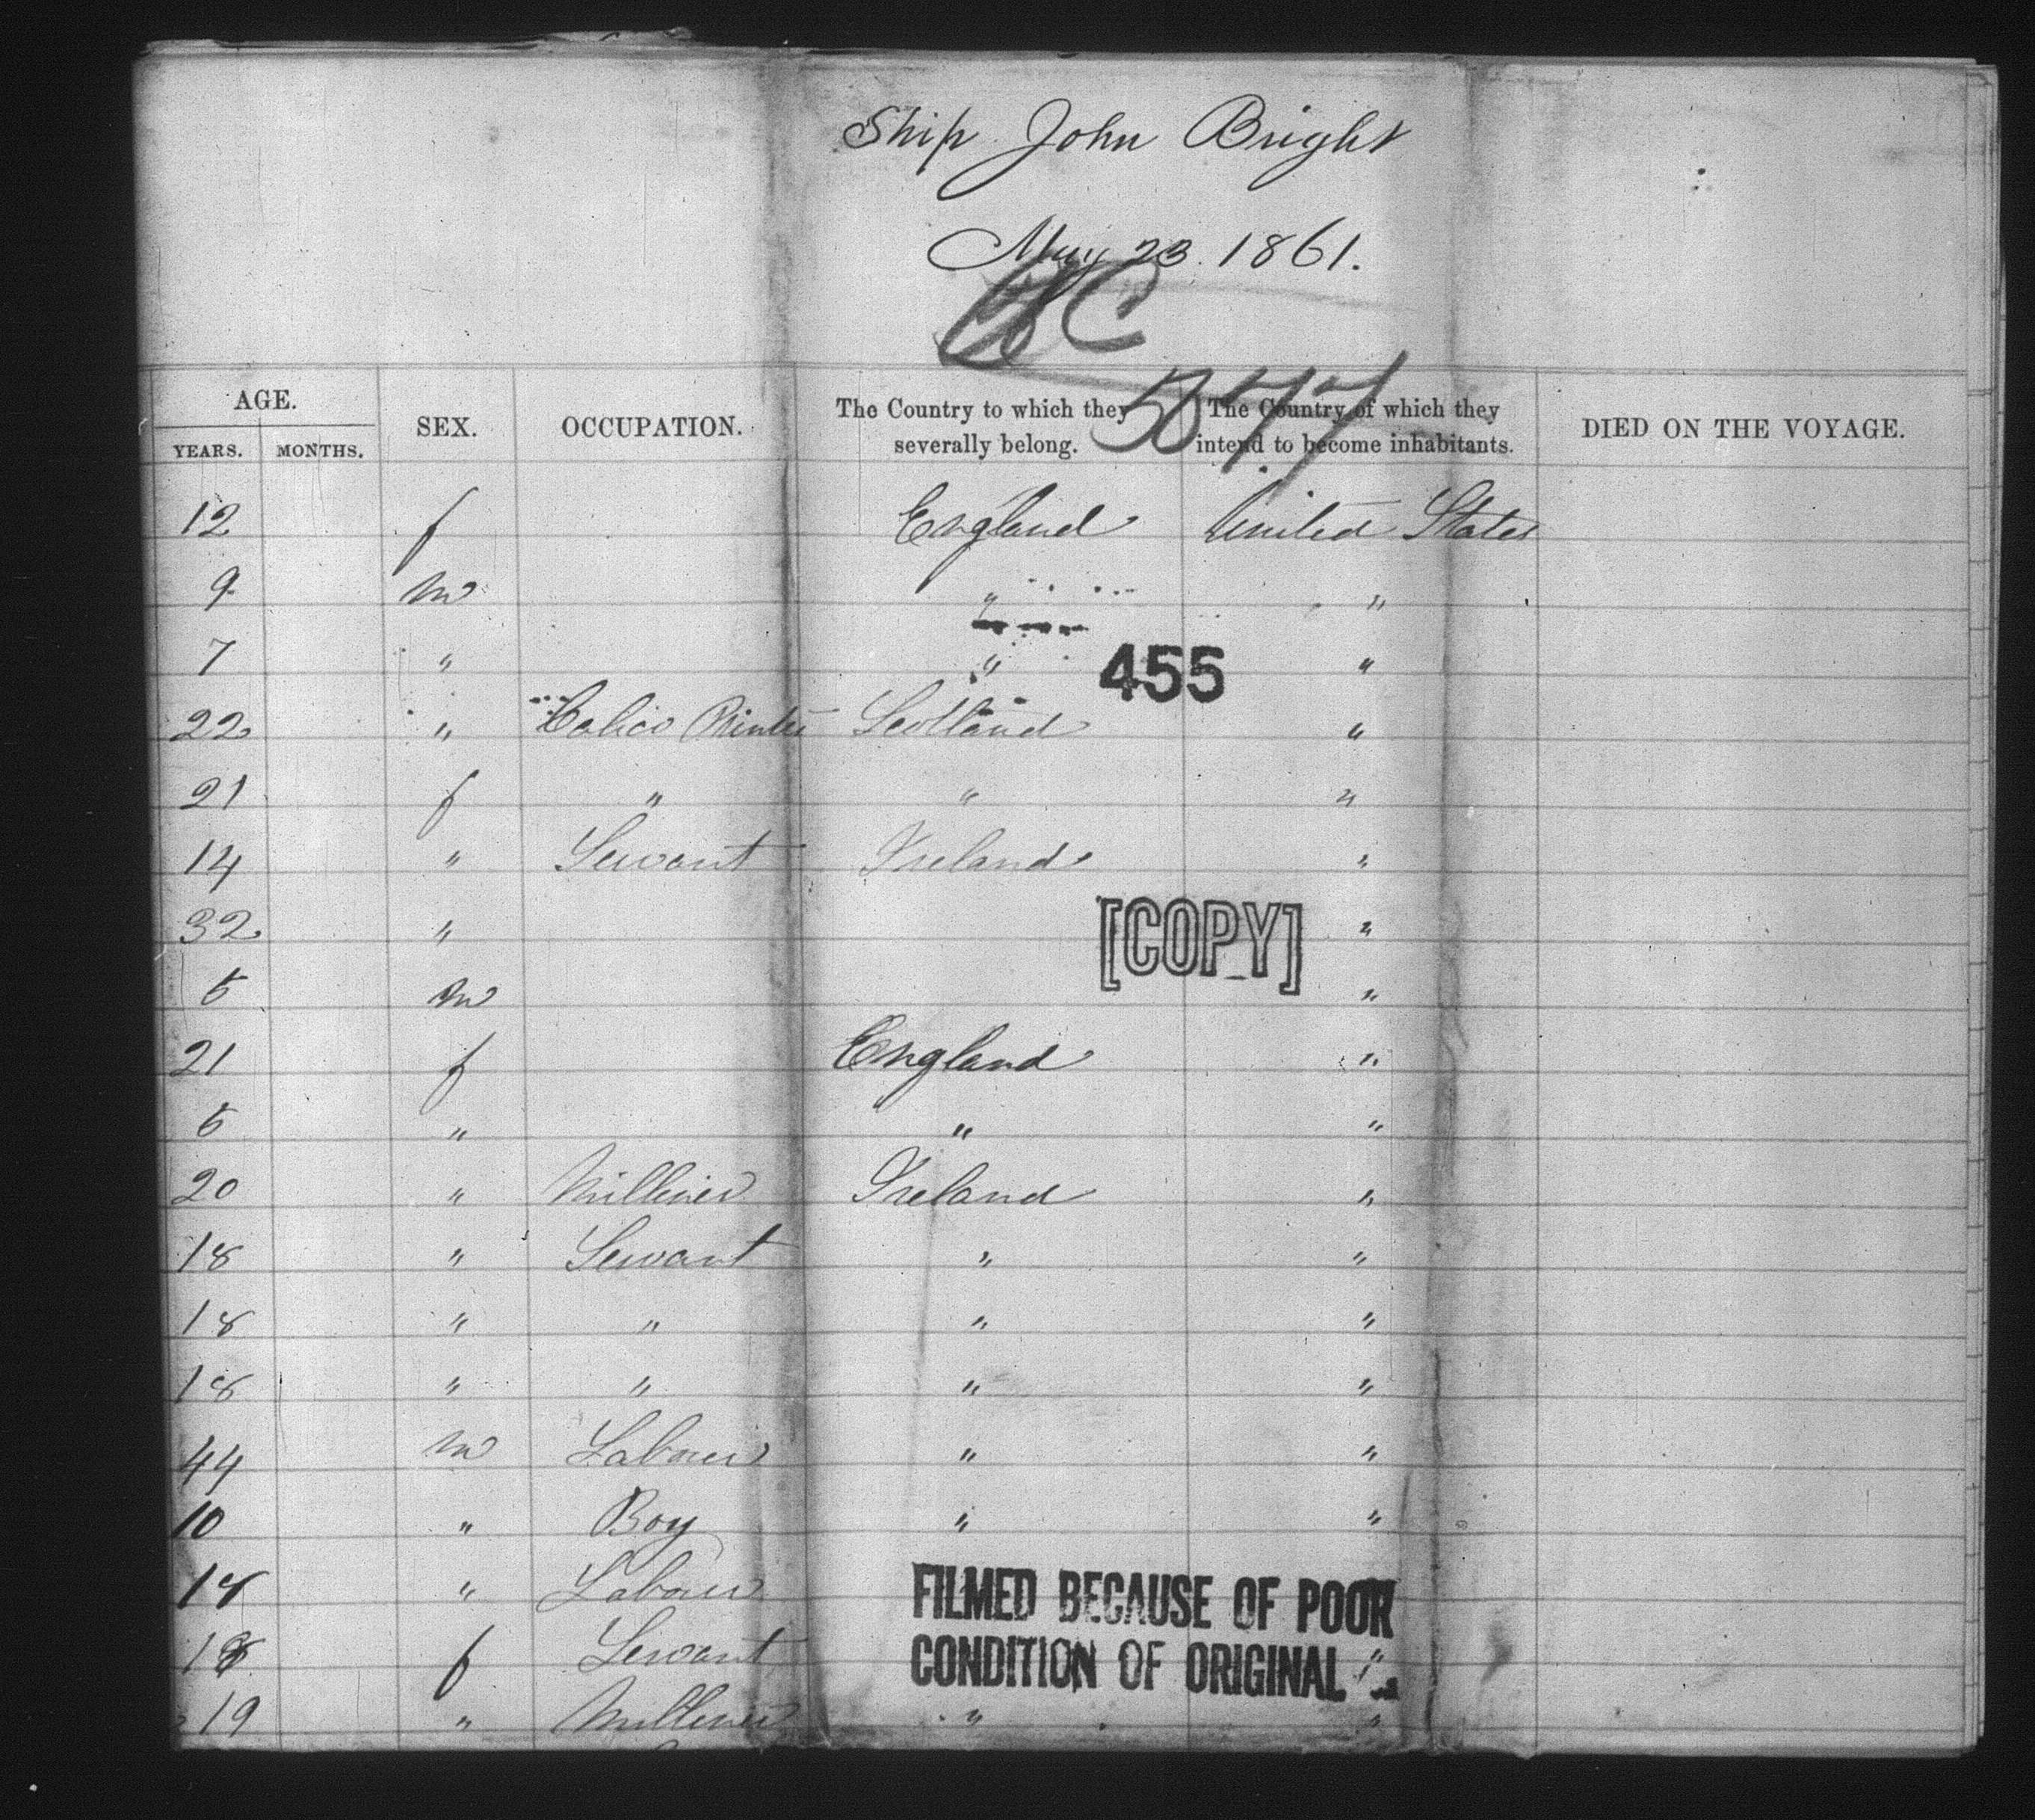 Ship John Bright
May 23. 1861.
577
AGE. SEX. OCCUPATION. The Country to which they severally belong. The Country of which they intend to become inhabitants. DIED ON THE VOYAGE.
YEARS. MONTHS.
12 f England United States
9 m " "
7 " " "
455
22 " Calico Printer Scotland "
21 f " " "
14 " Servant Ireland "
32 " "
[COPY]
5 m "
21 f England "
6 " " "
20 " Milliner Ireland "
18 " Servant " "
18 " " " "
18 " " " "
44 m Labourer " "
10 " Boy " "
18 " Labourer
FILMED BECAUSE OF POOR
18 f Servant "
CONDITION OF ORIGINAL
19 " Milliner " "